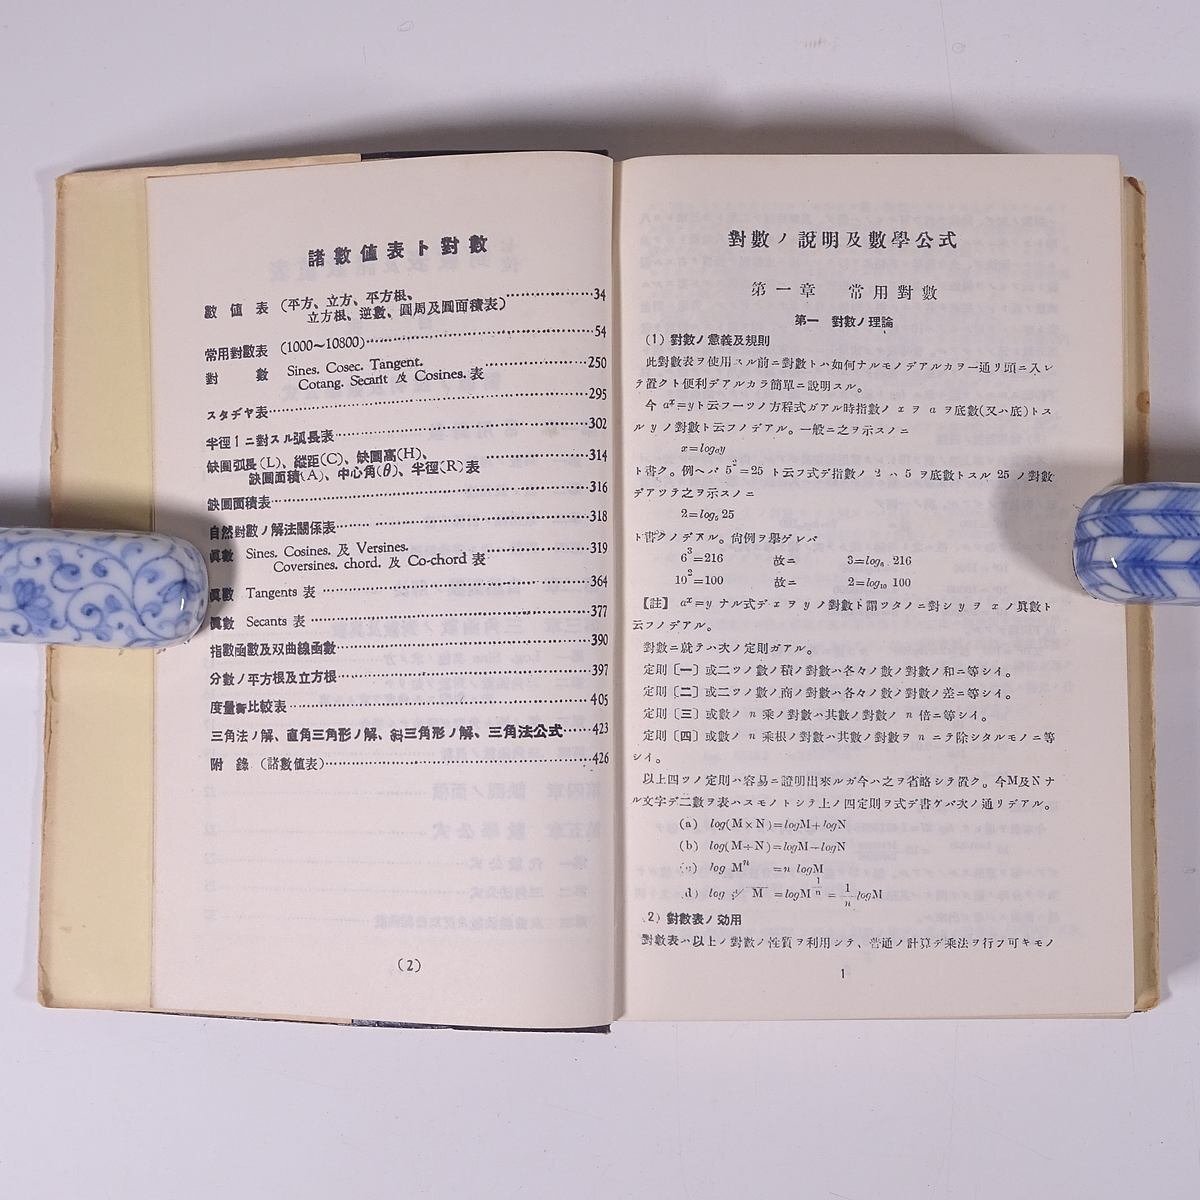 諸數値表ト對數
數値表 (平方、立方、平方根、
立方根、逆數、圓周及圓面積表)……34
常用對數表 (1000～10800)……54
對數 Sines. Cosec. Tangent.
Cotang. Secant 及 Cosines. 表……250
スタデヤ表……295
半徑1ニ對スル弧長表……302
缺圓弧長(L)、縱距(C)、缺圓高(H)、
缺圓面積(A)、中心角(θ)、半徑(R)表……314
缺圓面積表……316
自然對數ノ解法關係表……318
眞數 Sines. Cosines. 及 Versines.
Coversines. chord. 及 Co-chord 表……319
眞數 Tangents 表……364
眞數 Secants 表……377
指數函數及双曲線函數……390
分數ノ平方根及立方根……397
度量衡比較表……405
三角法ノ解、直角三角形ノ解、斜三角形ノ解、三角法公式……423
附錄 (諸數値表)……426
(2)
對數ノ說明及數學公式
第一章 常用對數
第一 對數ノ理論
(1) 對數ノ意義及規則
此對數表ヲ使用スル前ニ對數トハ如何ナルモノデアルカヲ一通リ頭ニ入レ
テ置クト便利デアルカラ簡單ニ說明スル。
今 aˣ=yト云フ一ツノ方程式ガアル時指數ノ x ヲ a ヲ底數(又ハ底)トス
ル y ノ對數ト云フノデアル。一般ニ之ヲ示スノニ
x=logₐy
ト書ク。例ヘバ 5²=25 ト云フ式デ指數ノ 2 ハ 5 ヲ底數トスル 25 ノ對數
デアツテ之ヲ示スノニ
2=log₅ 25
ト書クノデアル。尙例ヲ擧ゲレバ
6³=216 故ニ 3=log₆ 216
10²=100 故ニ 2=log₁₀ 100
【註】 aˣ=y ナル式デ x ヲ y ノ對數ト謂ツタノニ對シ y ヲ x ノ眞數ト
云フノデアル。
對數ニ就テハ次ノ定則ガアル。
定則〔一〕或二ツノ數ノ積ノ對數ハ各々ノ數ノ對數ノ和ニ等シイ。
定則〔二〕或二ツノ數ノ商ノ對數ハ各々ノ數ノ對數ノ差ニ等シイ。
定則〔三〕或數ノ n 乘ノ對數ハ其數ノ對數ノ n 倍ニ等シイ。
定則〔四〕或數ノ n 乘根ノ對數ハ其數ノ對數ヲ n ニテ除シタルモノニ等
シイ。
以上四ツノ定則ハ容易ニ證明出來ルガ今ハ之ヲ省略シテ置ク。今M及Nナ
ル文字デ二數ヲ表ハスモノトシテ上ノ四定則ヲ式デ書ケバ次ノ通リデアル。
(a) log(M×N)=logM+logN
(b) log(M÷N)=logM−logN
(c) log Mⁿ =n logM
(d) log ⁿ√M =logM^(1/n) = 1/n logM
(2) 對數表ノ効用
對數表ハ以上ノ對數ノ性質ヲ利用シテ、普通ノ計算デ乘法ヲ行フ可キモノ
1